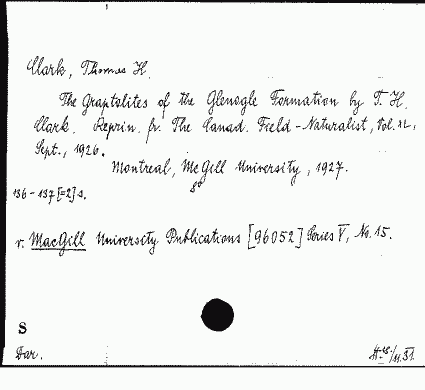 Clark, Thomas H.
The Graptolites of the Glenogle Formation by T. H.
Clark. Reprin. fr. The Canad. Field-Naturalist, Vol. XL,
Sept., 1926.
Montreal, McGill University, 1927.
8°
136-137 [=2] s.
v. MacGill University Publications [96052] Series V, No. 15.
S
Dar.